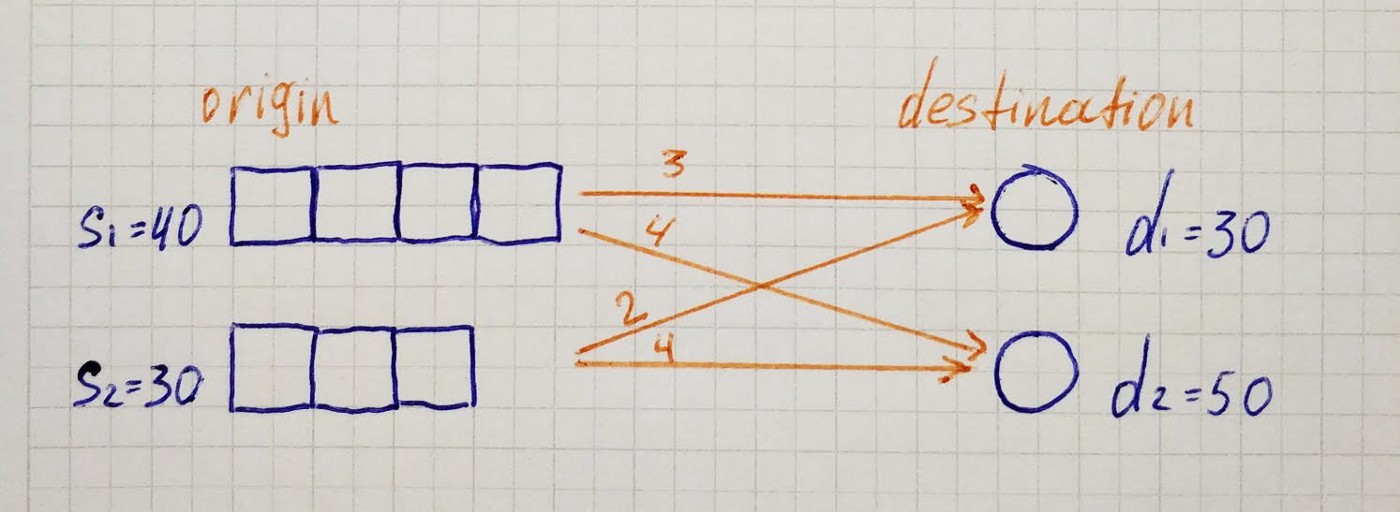 origin destination
3
S₁=40 d₁=30
4
2
4
S₂=30 d₂=50